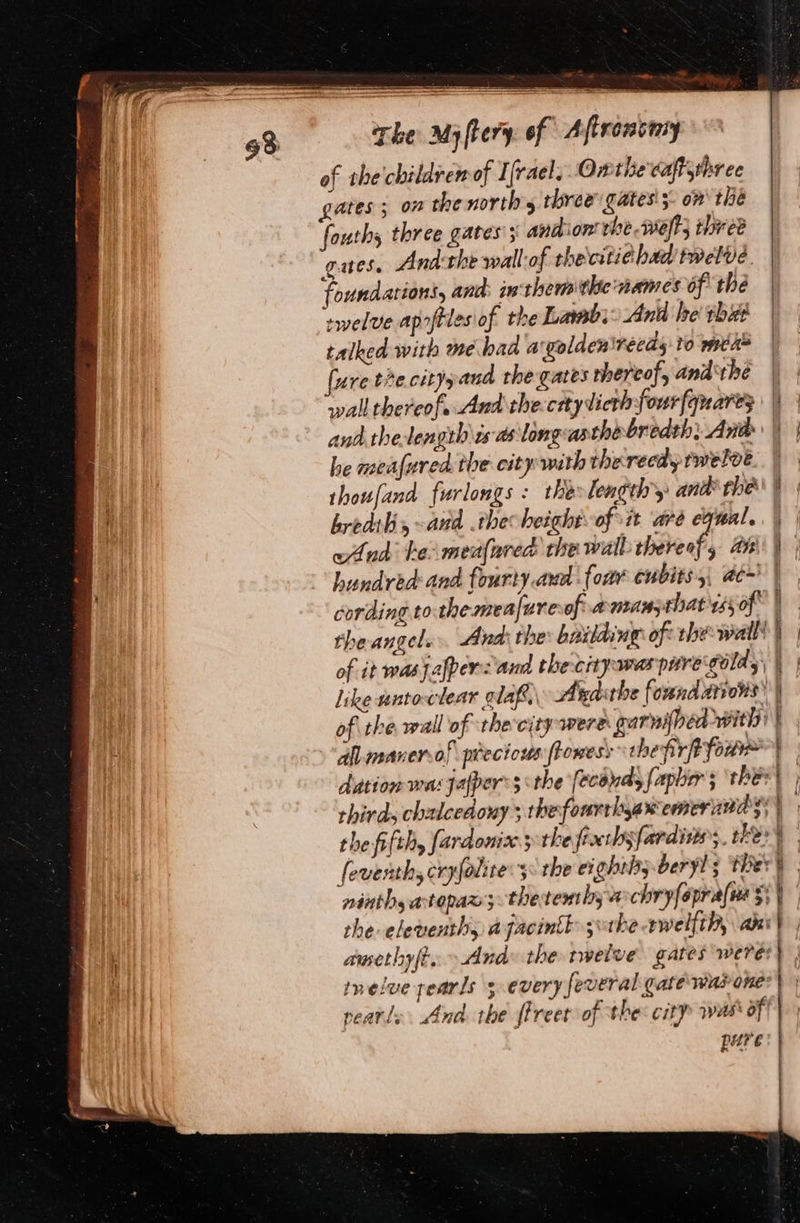 98
The Myſtery of Aſtronomy
of the children of Iſrael, On the eaſt, three
gates; on the north, three gates; on the
ſouth, three gates; and on the weſt, three
gates. And the wall of the citie had twelve
foundations, and in them the names of the
twelve apoſtles of the Lamb; And he that
talked with me had a golden reed, to mea-
ſure the city, and the gates thereof, and the
wall thereof. And the city lieth fourſquare,
and the length is as long as the bredth: And
he meaſured the city with the reed, twelve
thouſand furlongs: the length, and the
bredth, and the height of it are equal.
And he meaſured the wall thereof, an
hundred and fourty and four cubits, ac-
cording to the meaſure of a man, that is, of
the angel. And the building of the wall
of it was jaſper: and the city was pure gold,
like unto clear glaſs. And the foundations
of the wall of the city were garniſhed with
all maner of precious ſtones: the firſt foun-
dation was jaſper; the ſecond, ſaphir; the
third, chalcedony; the fourth, an emerand;
the fifth, ſardonix; the ſixth, ſardius; the
ſeventh, cryſolite; the eighth, beryl; the
ninth, a topaz; the tenth, a chryſopraſus;
the eleventh, a jacinct; the twelfth, an
amethyſt. And the twelve gates were
twelve pearls; every ſeveral gate was one
pearl: And the ſtreet of the city was of
pure